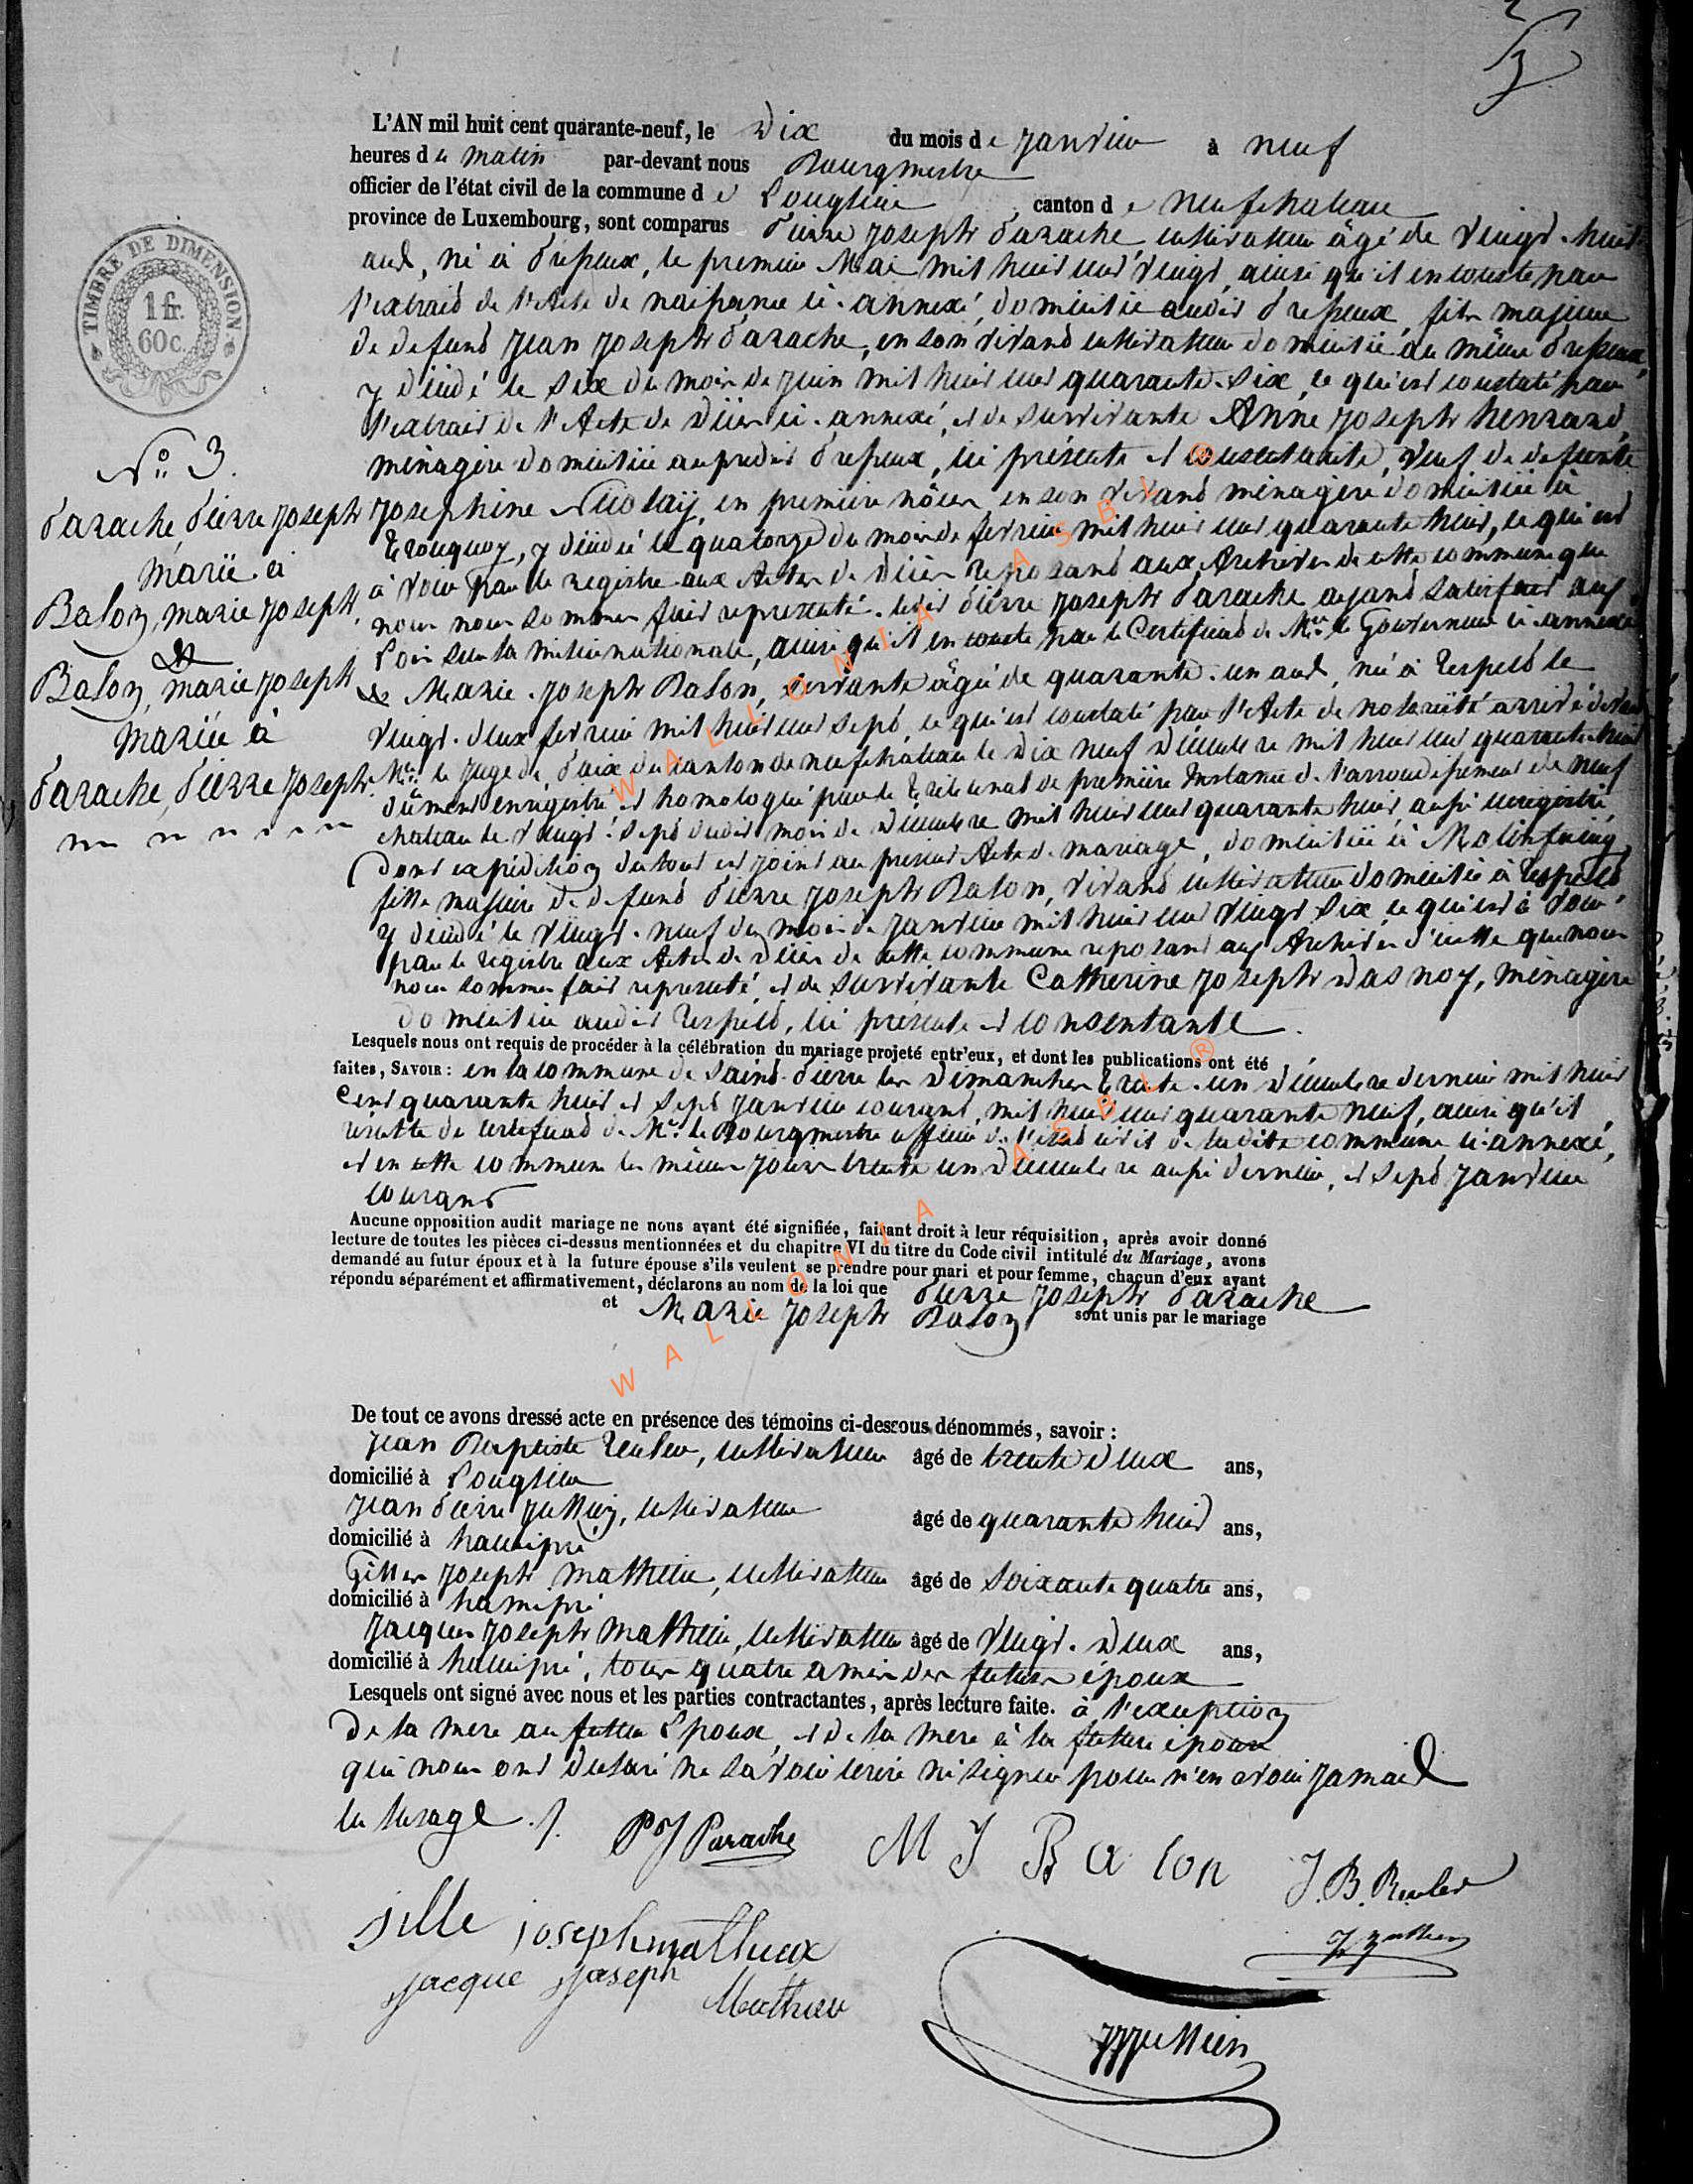 L'AN mil huit cent quarante-neuf, le Dix du mois de Janvier à neuf
heures du matin par-devant nous Bourgmestre
officier de l'état civil de la commune de Longlier, canton de Neufchateau
province de Luxembourg, sont comparus Pierre Joseph Parache cultivateur âgé de vingt-huit
ans, né à Presseux, le premier Mai mil huit cent vingt, ainsi qu'il en conste par
l'extrait de l'Acte de naissance ci-annexé, domicilié audit Presseux, fils majeur
de defunt Jean Joseph Parache, en son vivant cultivateur domicilié au même Presseux,
y décédé le six du mois de Juin mil huit cent quarante-six, ce qui est constaté par
l'extrait de l'Acte de Décès ci-annexé, et de survivante Anne Joseph henrard,
ménagère domiciliée au predit Presseux, ici présente et consentante, veuf de defunte
Josephine Nicolaÿ, en première nôces, en son vivant ménagère domiciliée à
Tronquoy, y décédé le quatorze du moi de fevrier mil huit cent quarante huit, ce qui est
à voir par le registre aux Actes de Décès reposant aux Archives de cette commune que
nous nous sommes fait representé. ledit Pierre Joseph Parache ayant satisfait aux
Lois sur la milice nationale, ainsi qu'il en conste par le Certificat de Mr. le Gouverneur ci-annexé
& Marie-Joseph Balon, servante âgée de quarante-un ans, né à Respelt le
vingt-deux fevrier mil huit cent sept, ce qui est constaté par l'Acte de notoriété arrivé devant
Mr. le Juge de Paix du canton de neufchateau le Dix neuf Décembre mil huit cent quarante-huit
dûment enrégistré et homologué par le Tribunal de première Instance de l'arrondissement de neuf
chateau le vingt-sept dudit mois de Décembre mil huit cent quarante huit, aussi enregistré,
dont expédition du tout est joint au présent Acte de mariage, domiciliée à Molinfaing
fille majeure de defunt Pierre Joseph Balon, vivant cultivateur domicilié à Respelt
y décédé le vingt-neuf du mois de Janvier mil huit cent vingt six, ce qui est à voir
par le registre aux Actes de Décès de cette commune reposant aux Archives d'icelle que nous
nous sommes fait representé, et de survivante Catherine Joseph Dasnoy, ménagère
domiciliée audit Respelt, ici présente et consentante.
Lesquels nous ont requis de procéder à la célébration du mariage projeté entr'eux, et dont les publications ont été
faites, SAVOIR : en la commune de Saint-Pierre les Dimanches trente-un Décembre dernier mil huit
Cent quarante huit et sept Janvier courant, mil huit cent quarante neuf, ainsi qu'il
résulte du certificat de Mr. le Bourgmestre officier de l'état civil de ladite commune ci-annexé,
et en cette commune les mêmes jours trente un Décembre aussi dernier, et sept Janvier
courant
Aucune opposition audit mariage ne nous ayant été signifiée, faisant droit à leur réquisition, après avoir donné
lecture de toutes les pièces ci-dessus mentionnées et du chapitre VI du titre du Code civil intitulé du Mariage, avons
demandé au futur époux et à la future épouse s'ils veulent se prendre pour mari et pour femme, chacun d'eux ayant
répondu séparément et affirmativement, déclarons au nom de la loi que Pierre Joseph Parache
et Marie Joseph Balon sont unis par le mariage
De tout ce avons dressé acte en présence des témoins ci-dessous dénommés, savoir :
Jean Baptiste Reuler, cultivateur âgé de trente deux ans,
domicilié à Longlier
Jean Pierre Jullien, cultivateur âgé de quarante huit ans,
domicilié à hamipré
Gilles Joseph Mathieu, cultivateur âgé de soixante quatre ans,
domicilié à hamipré
Jacques Joseph Mathieu, cultivateur âgé de vingt-Deux ans,
domicilié à hamipré, tous quatre amis des futurs époux
Lesquels ont signé avec nous et les parties contractantes, après lecture faite. à l'exception
De la mere au futur Epoux, et de la mere à la future épouse
qui nous ont declaré ne savoir écrire ni signer pour n'en avoir jamais
eu lusage ./.
PJ Parache M J Balon J.B. Reuler
jille joseph mathieux
jacque joseph Mathieu
JPJullien
TIMBRE DE DIMENSION
1 fr.
60 c.
No 3.
Parache, Pierre Joseph
Marié à
Balon, Marie Joseph.
&
Balon, Marie Joseph
Mariée à
Parache, Pierre Joseph.
WALLONIA ASBL ®
WALLONIA ASBL ®